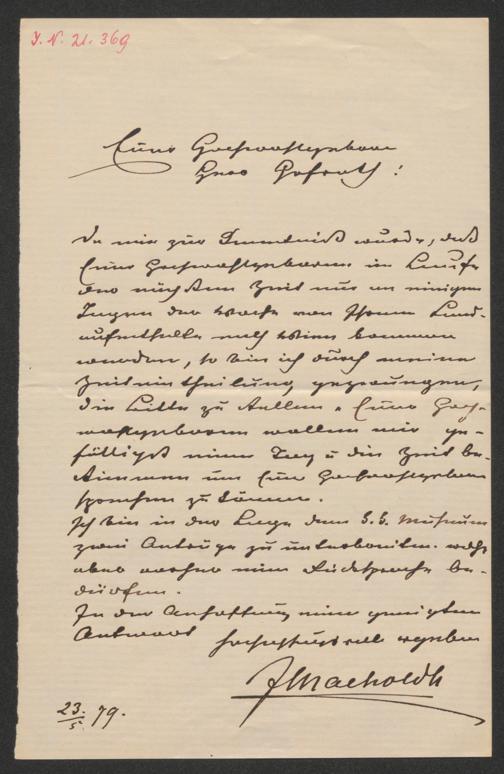 J. N. 21.369
Euer Hochwohlgeboren
Herr Hofrath!
Da mir zur Kenntniß wurde, daß
Euer Hochwohlgeboren im Laufe
der nächsten Zeit nur an einigen
Tagen der Woche von Ihrem Land-
aufenthalte nach Wien kommen
werden, so bin ich durch meine
Zeiteintheilung gezwungen,
die Bitte zu stellen, Euer Hoch-
wohlgeboren wollen mir ge-
fälligst einen Tag u die Zeit be-
stimmen um Euer Hochwohlgeboren
sprechen zu können.
Ich bin in der Lage dem k. k. Museum
zwei Anträge zu unterbreiten welche
aber vorher einer Rücksprache be-
dürfen.
In der Anhoffnung einer geneigten
Antwort hochachtungsvoll ergeben
Macholdt
23./5. 79.